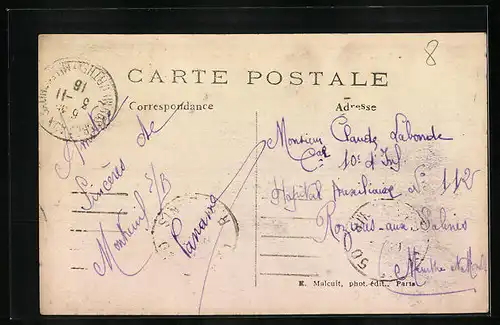 8
CARTE POSTALE
Correspondance
Adresse
Amitiés
Sincères de
Montreuil s/B
Panama
Monsieur Claude Labonde
Cal 10e d'Inf
Hôpital Auxiliaire No 112
Rozières-aux-Salines
Meurthe et Mos
E. Malcuit, phot.-édit., Paris